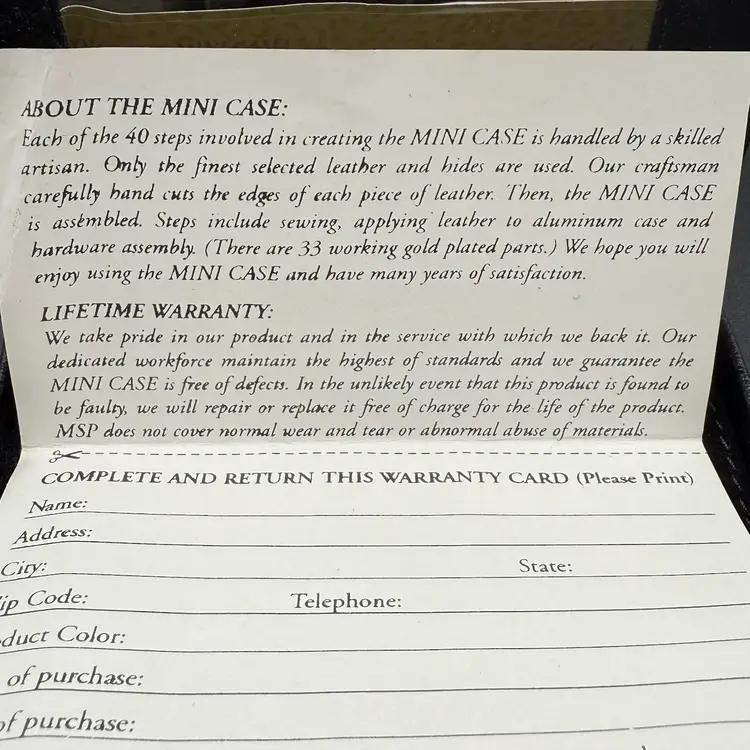 MINI CASE
ABOUT THE MINI CASE:
Each of the 40 steps involved in creating the MINI CASE is handled by a skilled
artisan. Only the finest selected leather and hides are used. Our craftsman
carefully hand cuts the edges of each piece of leather. Then, the MINI CASE
is assembled. Steps include sewing, applying leather to aluminum case and
hardware assembly. (There are 33 working gold plated parts.) We hope you will
enjoy using the MINI CASE and have many years of satisfaction.
LIFETIME WARRANTY:
We take pride in our product and in the service with which we back it. Our
dedicated workforce maintain the highest of standards and we guarantee the
MINI CASE is free of defects. In the unlikely event that this product is found to
be faulty, we will repair or replace it free of charge for the life of the product.
MSP does not cover normal wear and tear or abnormal abuse of materials.
COMPLETE AND RETURN THIS WARRANTY CARD (Please Print)
Name:
Address:
City: State:
ip Code: Telephone:
duct Color:
of purchase:
of purchase: